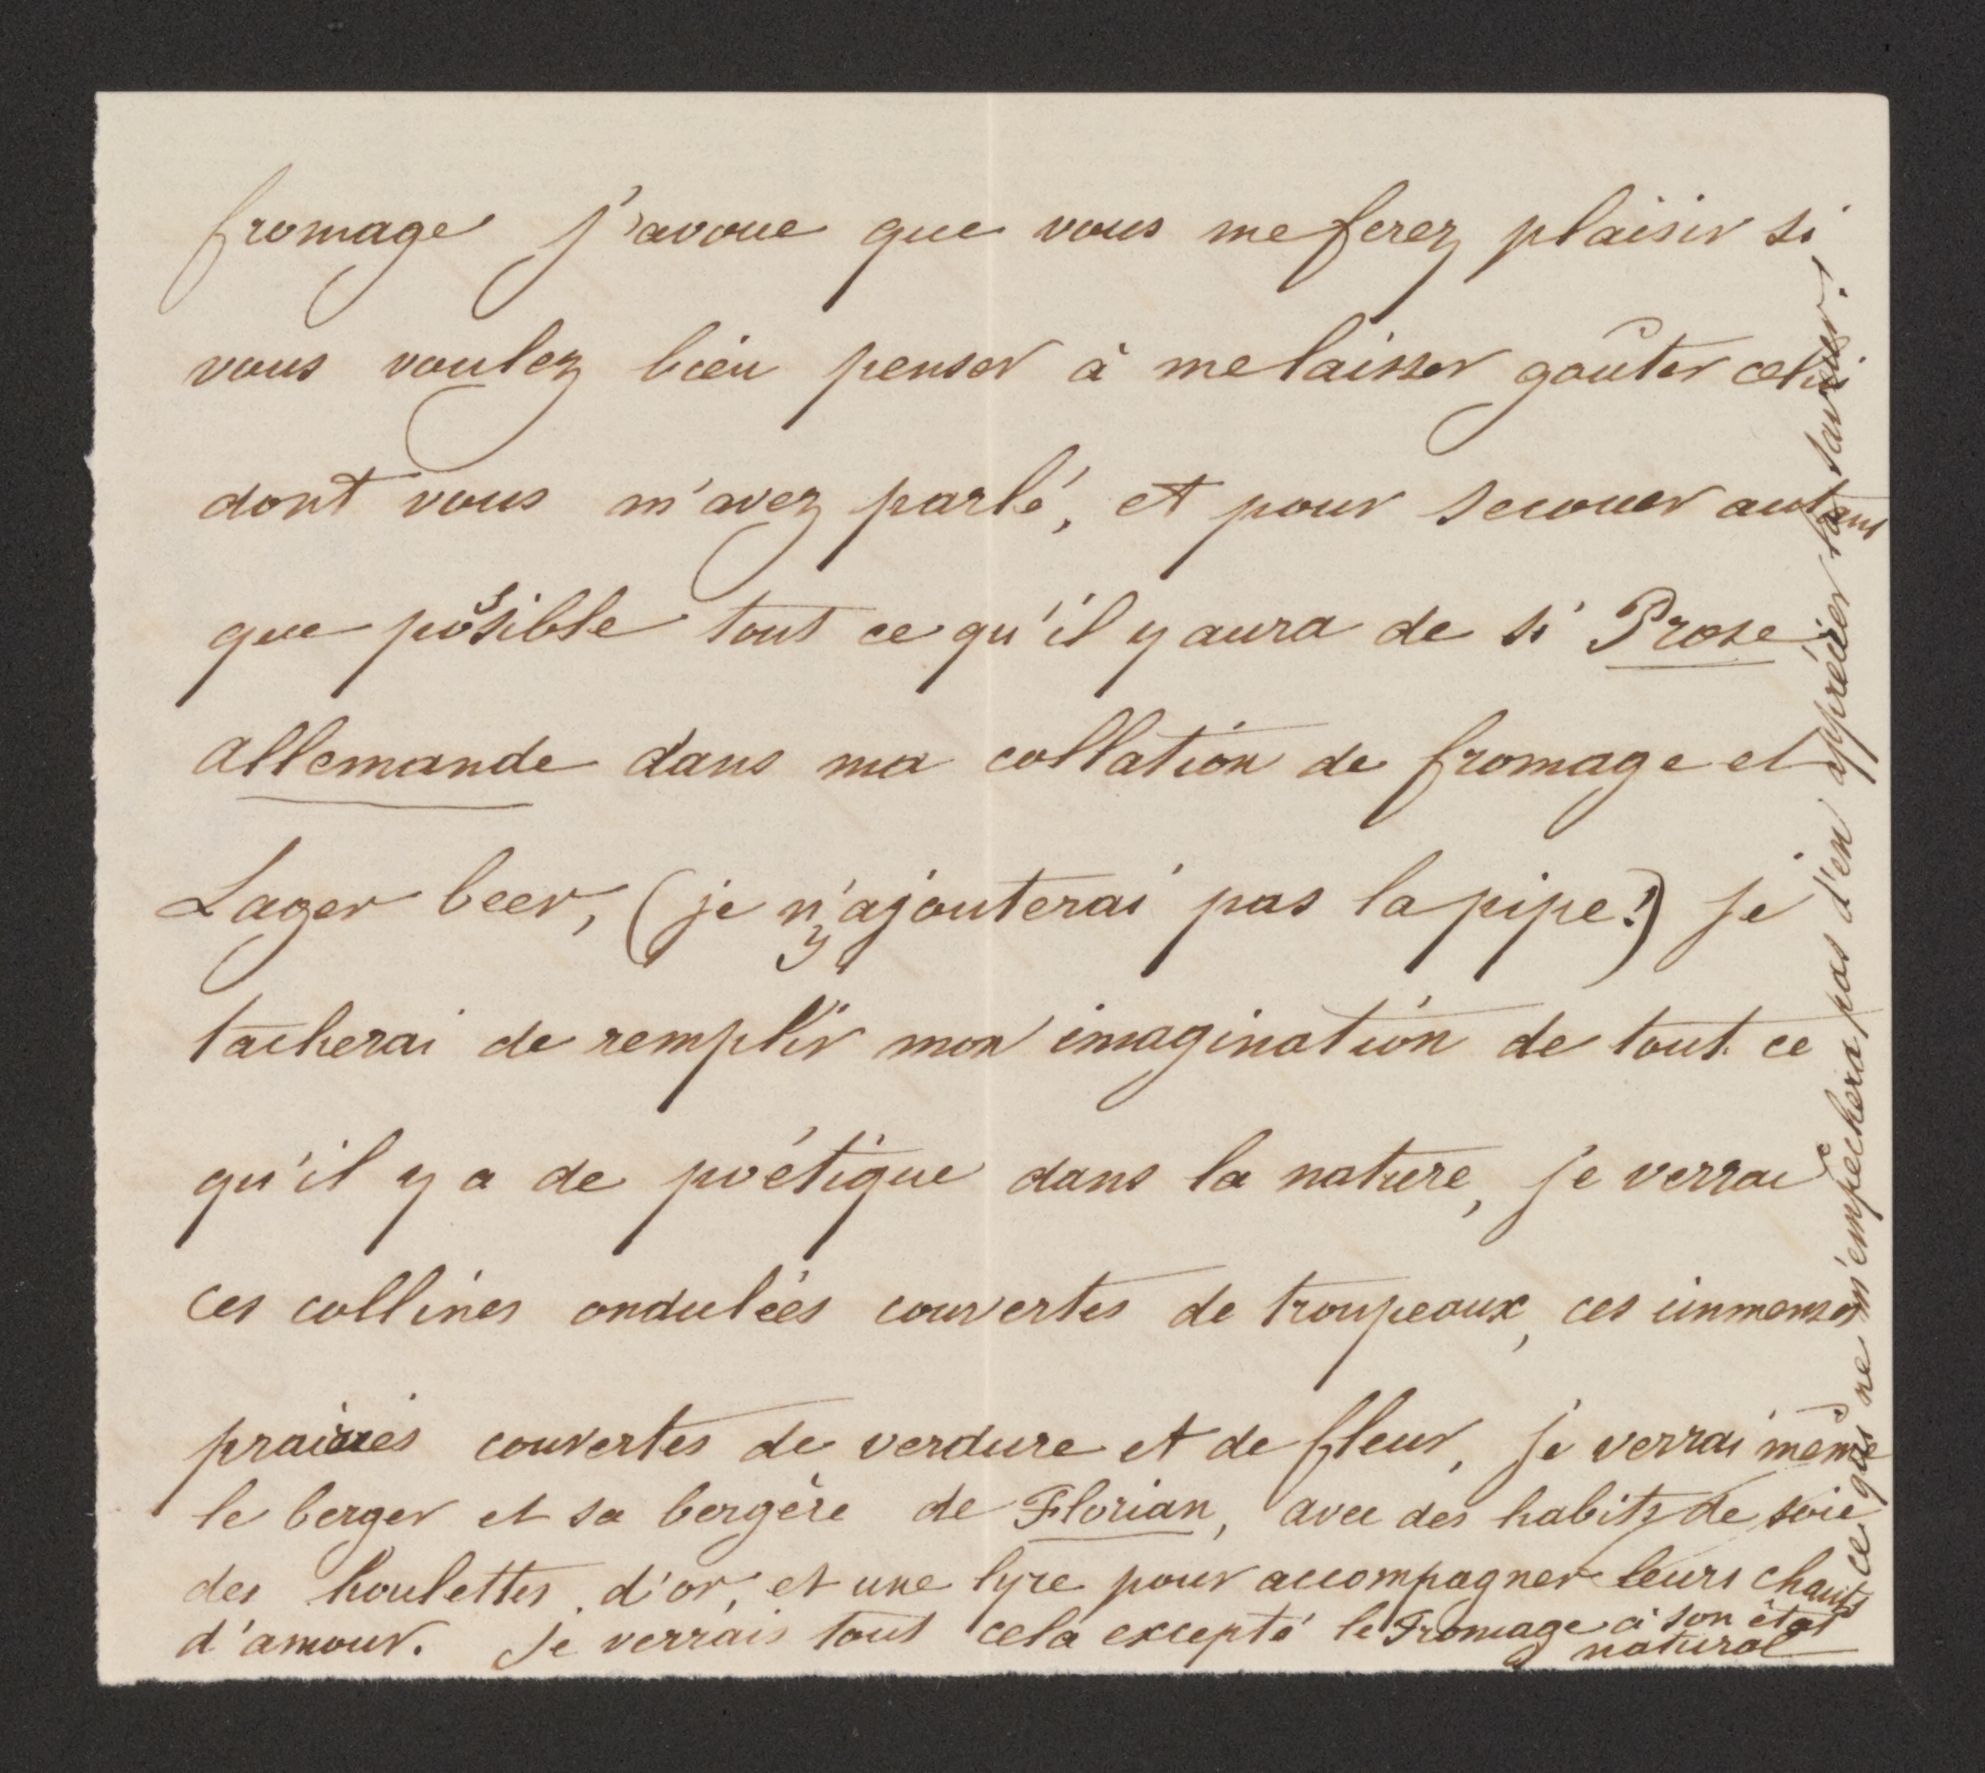 fromage j'avoue que vous me ferez plaisir si
vous voulez bien penser à me laisser goûter celui
dont vous m'avez parlé, et pour secouer autant
que possible tout ce qu'il y aura de si Prose
allemande dans ma collation de fromage et
Lager beer, (je n'y ajouterai pas la pipe!) je
tacherai de remplir mon imagination de tout ce
qu'il y a de poétique dans la nature, je verrai
ces collines ondulées couvertes de troupeaux, ces immenses
prairies couvertes de verdure et de fleur, je verrai même
le berger et sa bergère de Florian, avec des habits de soie
des houlettes d'or, et une lyre pour accompagner leurs chants
d'amour. Je verrais tout cela excepté le Fromage à son état
natural
ce qui ne m'empêchera pas d'en apprécier la saveur!